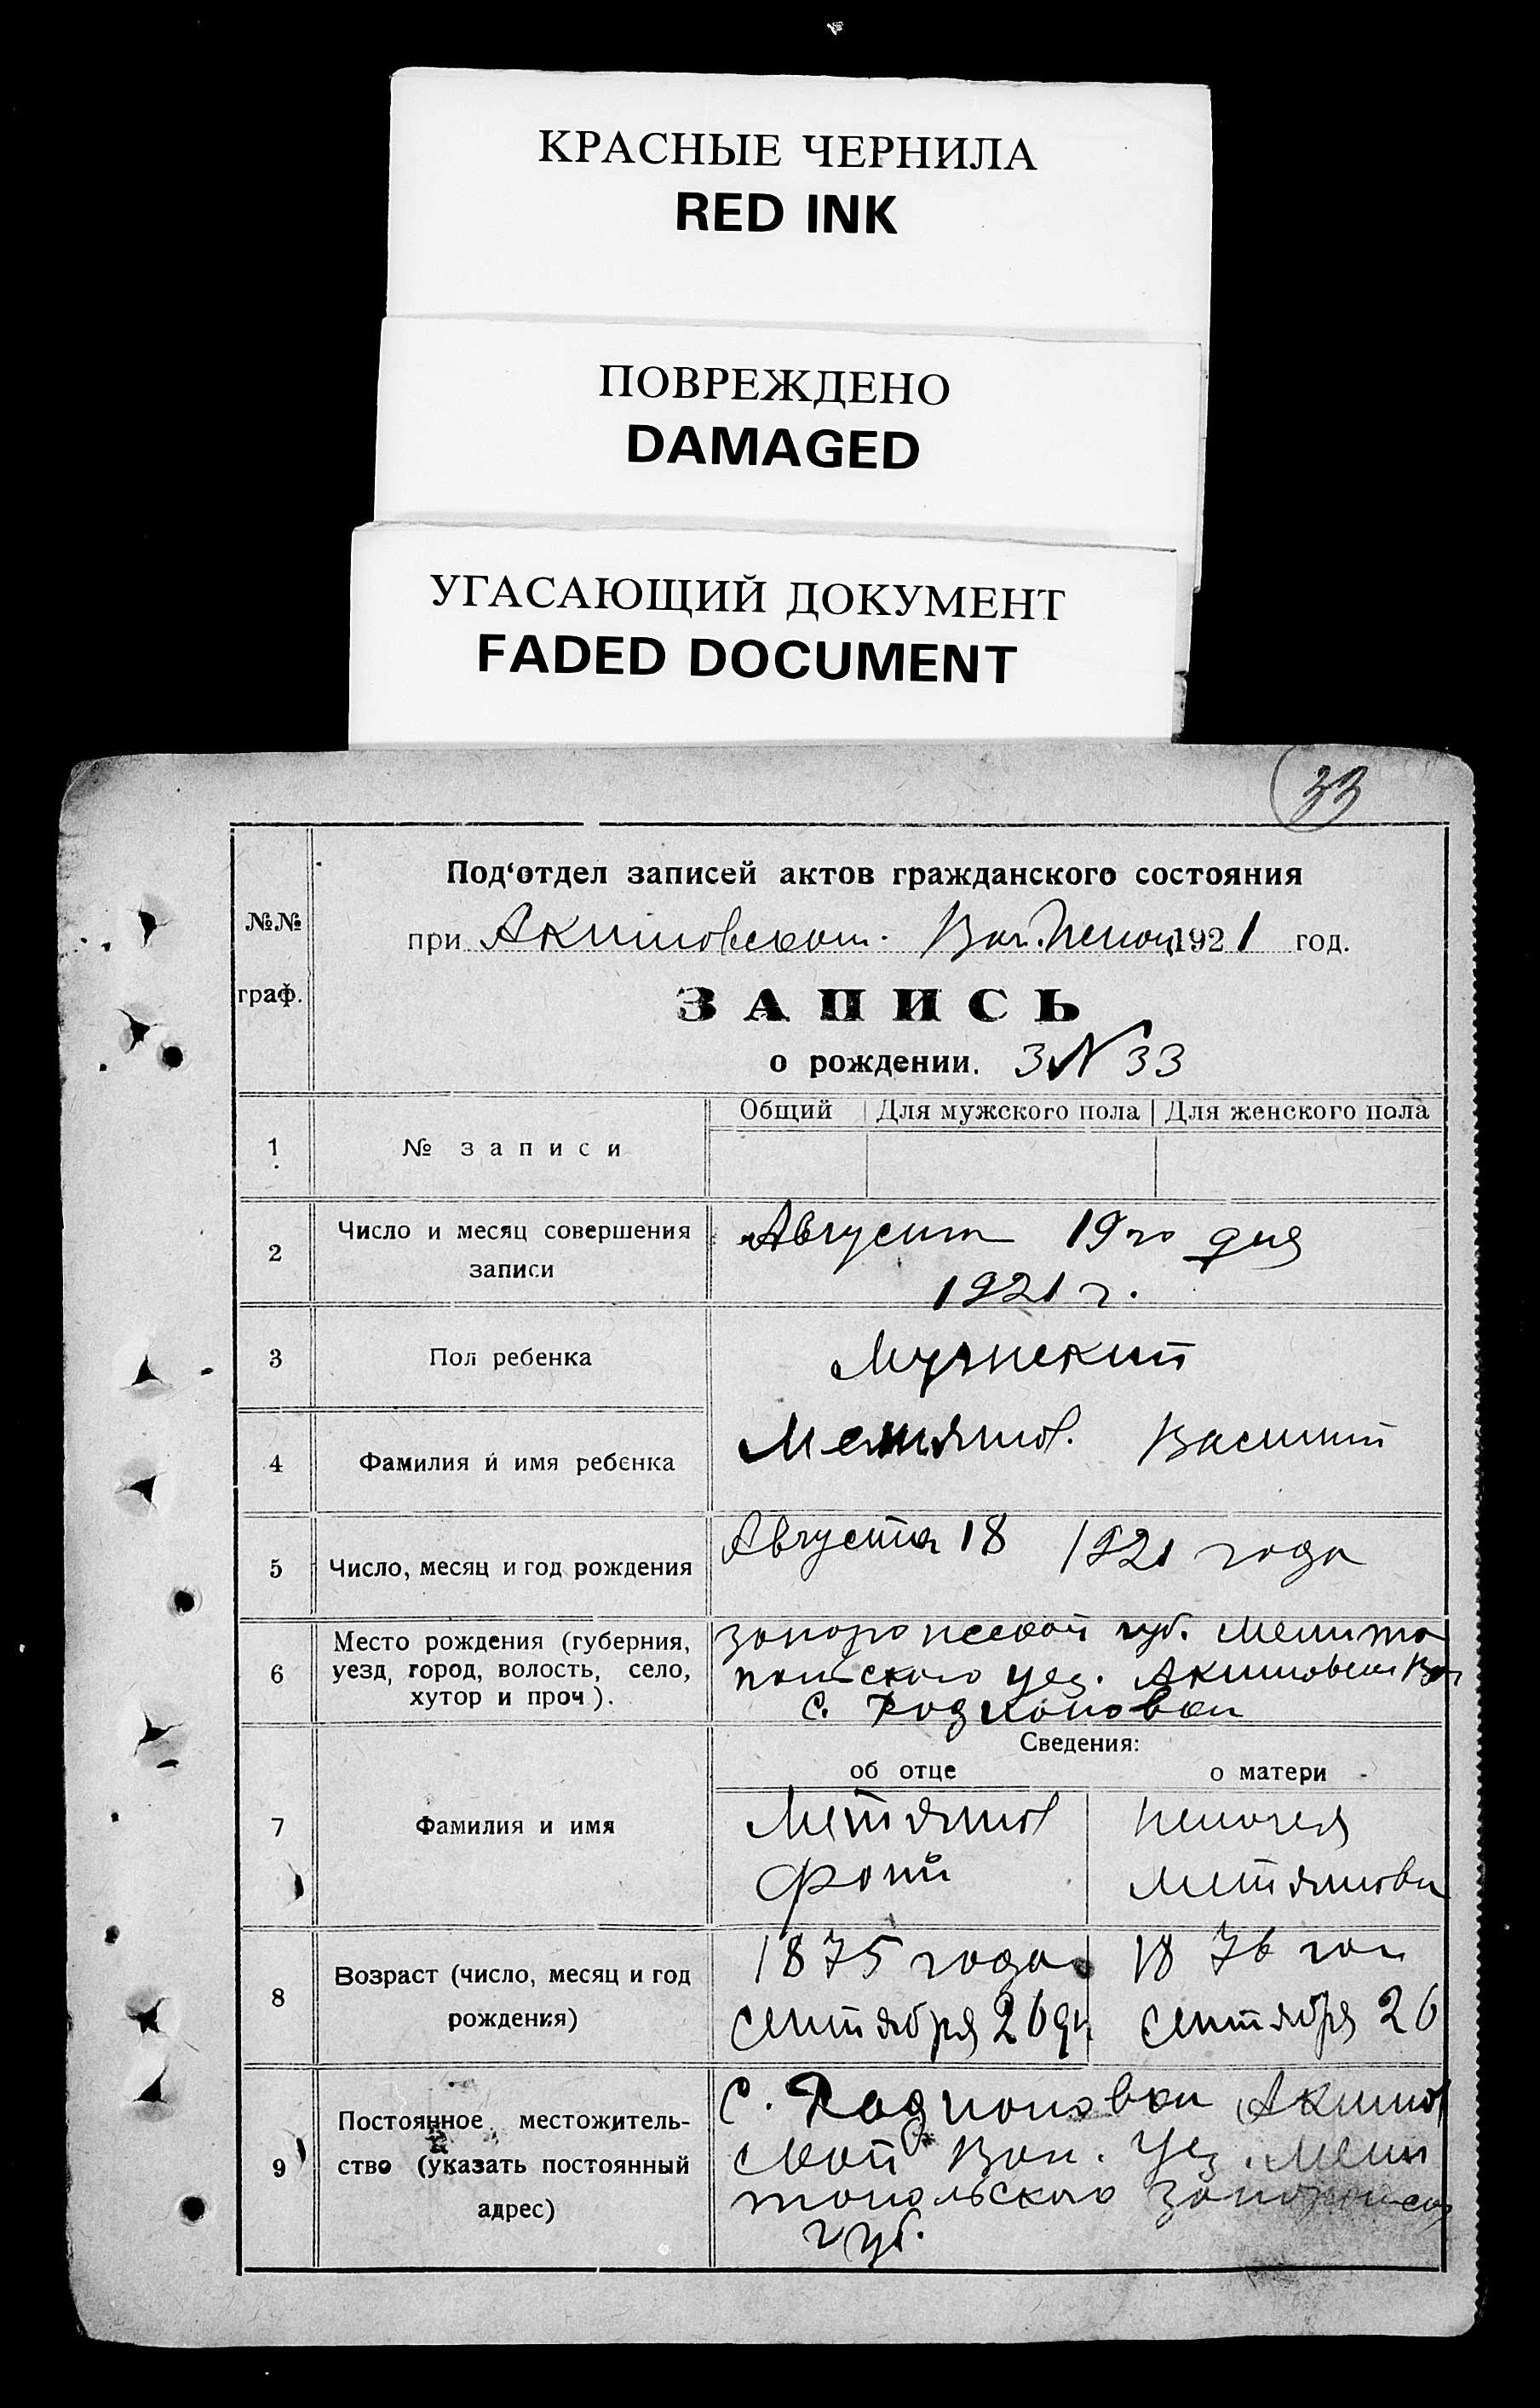 КРАСНЫЕ ЧЕРНИЛА
RED INK
ПОВРЕЖДЕНО
DAMAGED
УГАСАЮЩИЙ ДОКУМЕНТ
FADED DOCUMENT
33
Под‘отдел записей актов гражданского состояния
№№ граф.
при Акимовском Вол. 1921 год.
ЗАПИСЬ
о рождении. 3 N 33
Общий Для мужского пола Для женского пола
1 № записи
2 Число и месяц совершения записи
Августа 19го дня
1921 г.
3 Пол ребенка
Мужеский
4 Фамилия и имя ребенка
Василий
5 Число, месяц и год рождения
Августа 18 1921 года
6 Место рождения (губерния,
уезд, город, волость, село,
хутор и проч).
губ. Мелито
польского уез. Вол
с. Родионовки
Сведения:
об отце о матери
7 Фамилия и имя
8 Возраст (число, месяц и год
рождения)
1875 года 1876
сентября 26 сентября 26
9 Постоянное местожитель-
ство (указать постоянный
адрес)
С. Родионовки Акимов
ской Вол. Уез. Мели
топольского
губ.